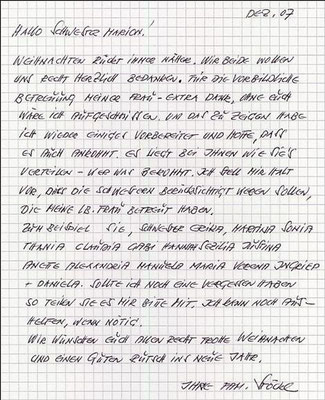 DEZ. 07
HALLO SCHWESTER MARION!
WEIHNACHTEN RÜCKT IMMER NÄHER. WIR BEIDE WOLLEN
UNS RECHT HERZLICH BEDANKEN. FÜR DIE VORBILDLICHE
BETREUUNG MEINER FRAU - EXTRA DANK, OHNE EUCH
WÄRE ICH AUFGESCHMISSEN. UM DAS ZU ZEIGEN HABE
ICH WIEDER EINIGES VORBEREITET UND HOFFE, DASS
ES AUCH ANKOMMT. ES LIEGT BEI IHNEN WIE SIE'S
VERTEILEN - WER WAS BEKOMMT. ICH STELL MIR HALT
VOR, DASS DIE SCHWESTERN BERÜCKSICHTIGT WERDEN SOLLEN,
DIE MEINE LB. FRAU BETREUT HABEN.
ZUM BEISPIEL SIE, SCHWESTER ERINA, MARTINA SONIA
THANIA CLAUDIA GABI HANNA SEZILIA JUSTINA
ANETTE ALEXANDRIA MANUELA MARIA VERONA INGRIED
+ DANIELA. SOLLTE ICH NOCH EINE VERGESSEN HABEN
SO TEILEN SIE ES MIR BITTE MIT. ICH KANN NOCH AUS-
HELFEN, WENN NÖTIG.
WIR WÜNSCHEN EUCH ALLEN RECHT FROHE WEIHNACHEN
UND EINEN GUTEN RUTSCH INS NEUE JAHR.
IHRE FAM.